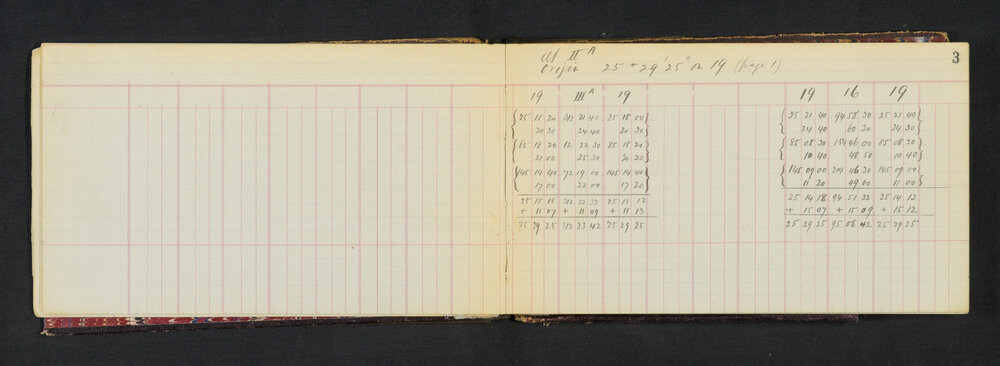 At II A
3
Origin 25° 29' 25" on 19 (page 1)
19 III A 19
19 16 19
25 18 20 312 21 40 25 18 00
20 30 24 40 20 30
85 18 20 12 22 30 85 18 20
21 00 25 30 20 20
145 14 40 72 19 00 145 14 40
17 00 22 00 17 20
25 18 18 312 22 33 25 18 12
+ 11 07 + 11 09 + 11 13
25 29 25 312 33 42 25 29 25
25 21 40 94 58 30 25 21 40
24 40 60 30 24 30
85 08 30 154 46 00 85 08 20
10 40 48 50 10 40
145 09 00 214 46 30 145 09 00
11 20 49 00 11 00
25 14 18 94 51 33 25 14 13
+ 15 07 + 15 09 + 15 12
25 29 25 95 06 42 25 29 25